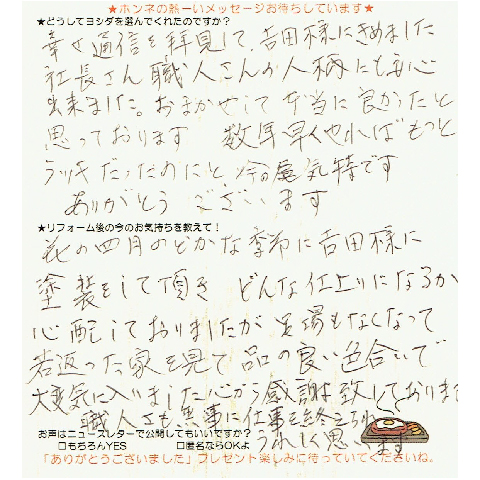 ★ホンネの熱ーいメッセージお待ちしています★
★どうしてヨシダを選んでくれたのですか？
幸せ通信を拝見して、吉田様にきめました
社長さん職人さんの人柄にも安心
出来ました。おまかせして本当に良かったと
思っております 数年早くやればもっと
ラッキだったのにと今の気持です
ありがとうございます
★リフォーム後の今のお気持ちを教えて！
花の四月のどかな季節に吉田様に
塗装をして頂き どんな仕上りになるか
心配しておりましたが足場もなくなって
若返った家を見て品の良い色合いで
大変気に入りました心から感謝致しております
職人さも無事に仕事を終えられ
うれしく思います
お声はニュースレターで公開してもいいですか？
□もちろんYES □匿名ならOKよ
「ありがとうございました」プレゼント楽しみに待っていてくださいね。